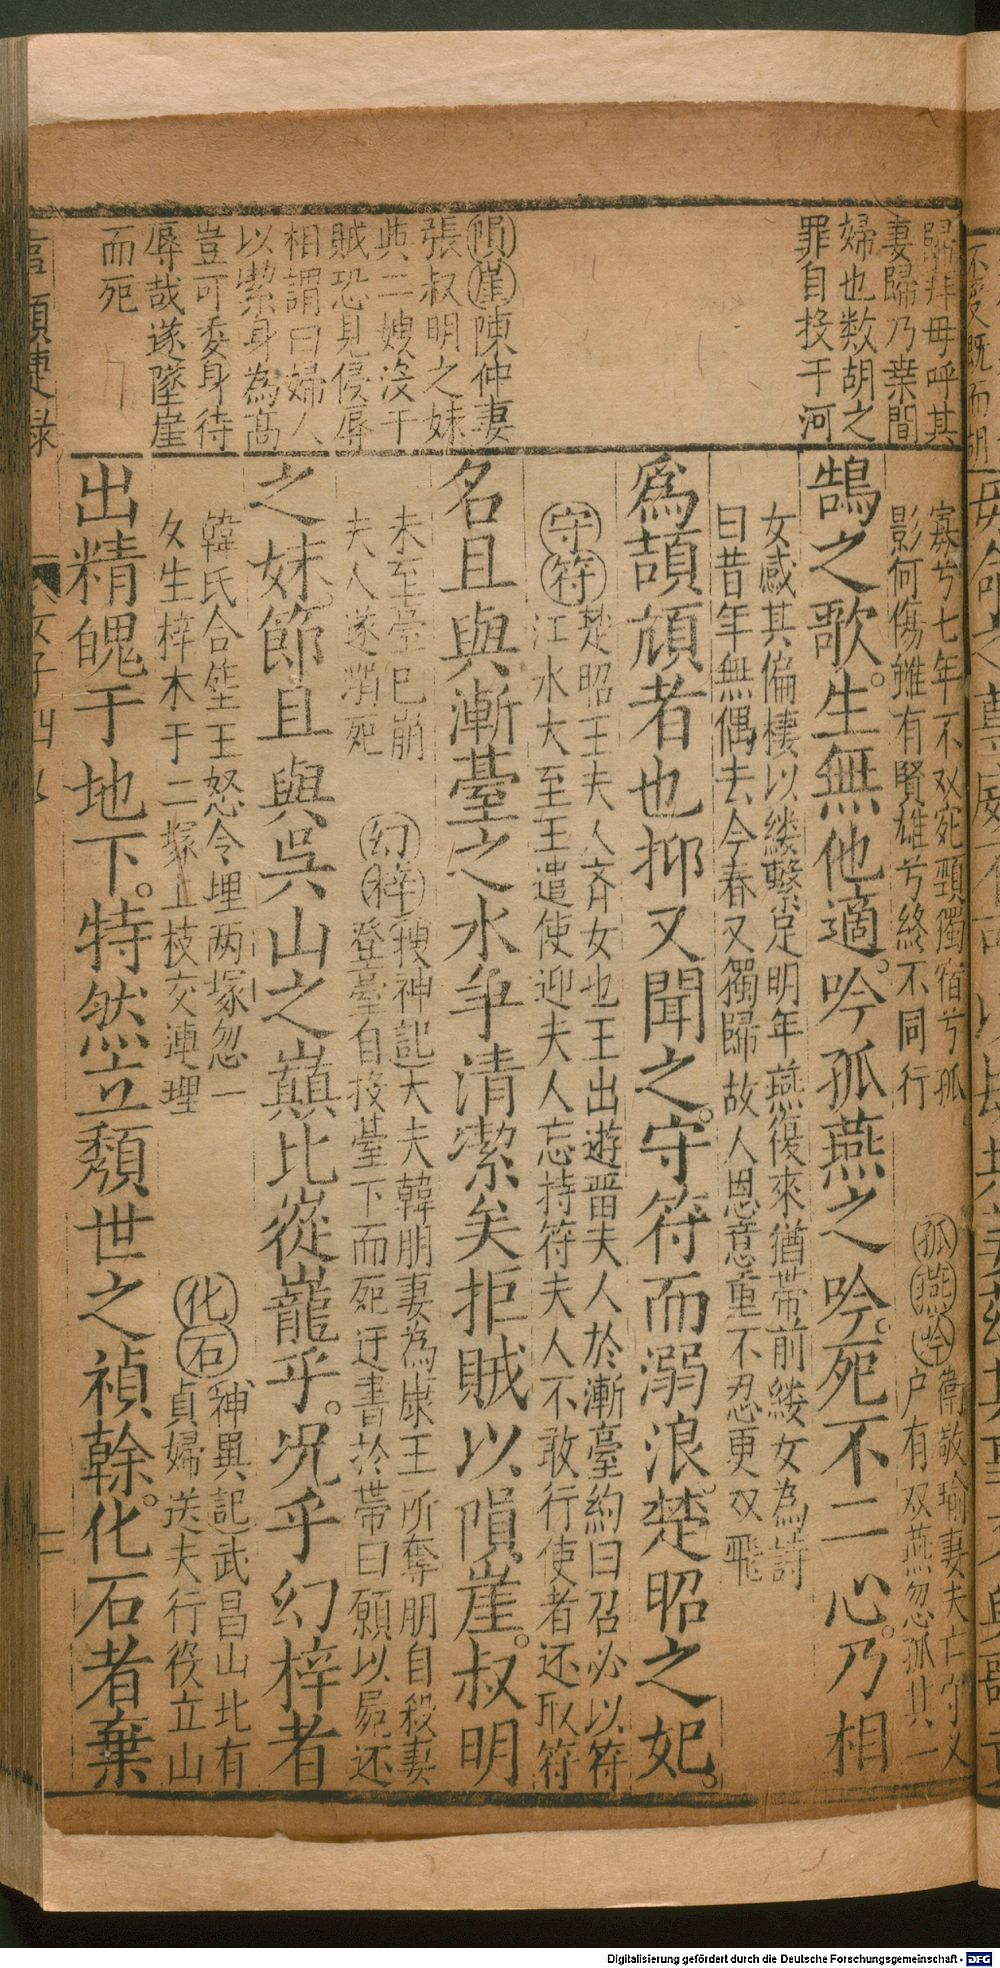 歸拜母呼其
妻歸乃桒間
婦也数胡之
罪自投于河
隕崖陳仲妻
張叔明之妹
與二嫂沒于
賊恐見侵辱
相謂曰婦人
以潔身為髙
豈可委身待
辱哉遂墜崖
而死
寡兮七年不双宛頸獨宿兮孤
影何傷雖有賢雄兮終不同行
孤燕吟衛敬瑜妻夫亡守义
户有双燕忽孤其一
鵠之歌生無他適。吟孤燕之吟。死不二心。乃相
女感其偏棲以縷繫足明年燕復來猶带前縷女為詩
曰昔年無偶去今春又獨歸故人恩意重不忍更双飛
爲頡頏者也抑又聞之。守符而溺浪。楚昭之妃。
守符楚昭王夫人斉女也王出遊畱夫人於漸臺約曰召必以符
江水大至王遣使迎夫人忘持符夫人不敢行使者还取符
名且與漸臺之水争清潔矣拒賊以隕崖。叔明
未至臺已崩
夫人遂溺死
幻梓搜神記大夫韓朋妻為康王所奪朋自殺妻
登臺自投臺下而死迂書於帯曰願以屍还
之妹節且與吳山之巔比從巃乎。况乎幻梓者
韓氏合𦵏王怒令埋两塚忽一
夂生梓木于二塚上枝交連理
化石神異記武昌山北有
貞婦送夫行役立山
出精魄于地下。特然立頽世之禎榦。化石者棄